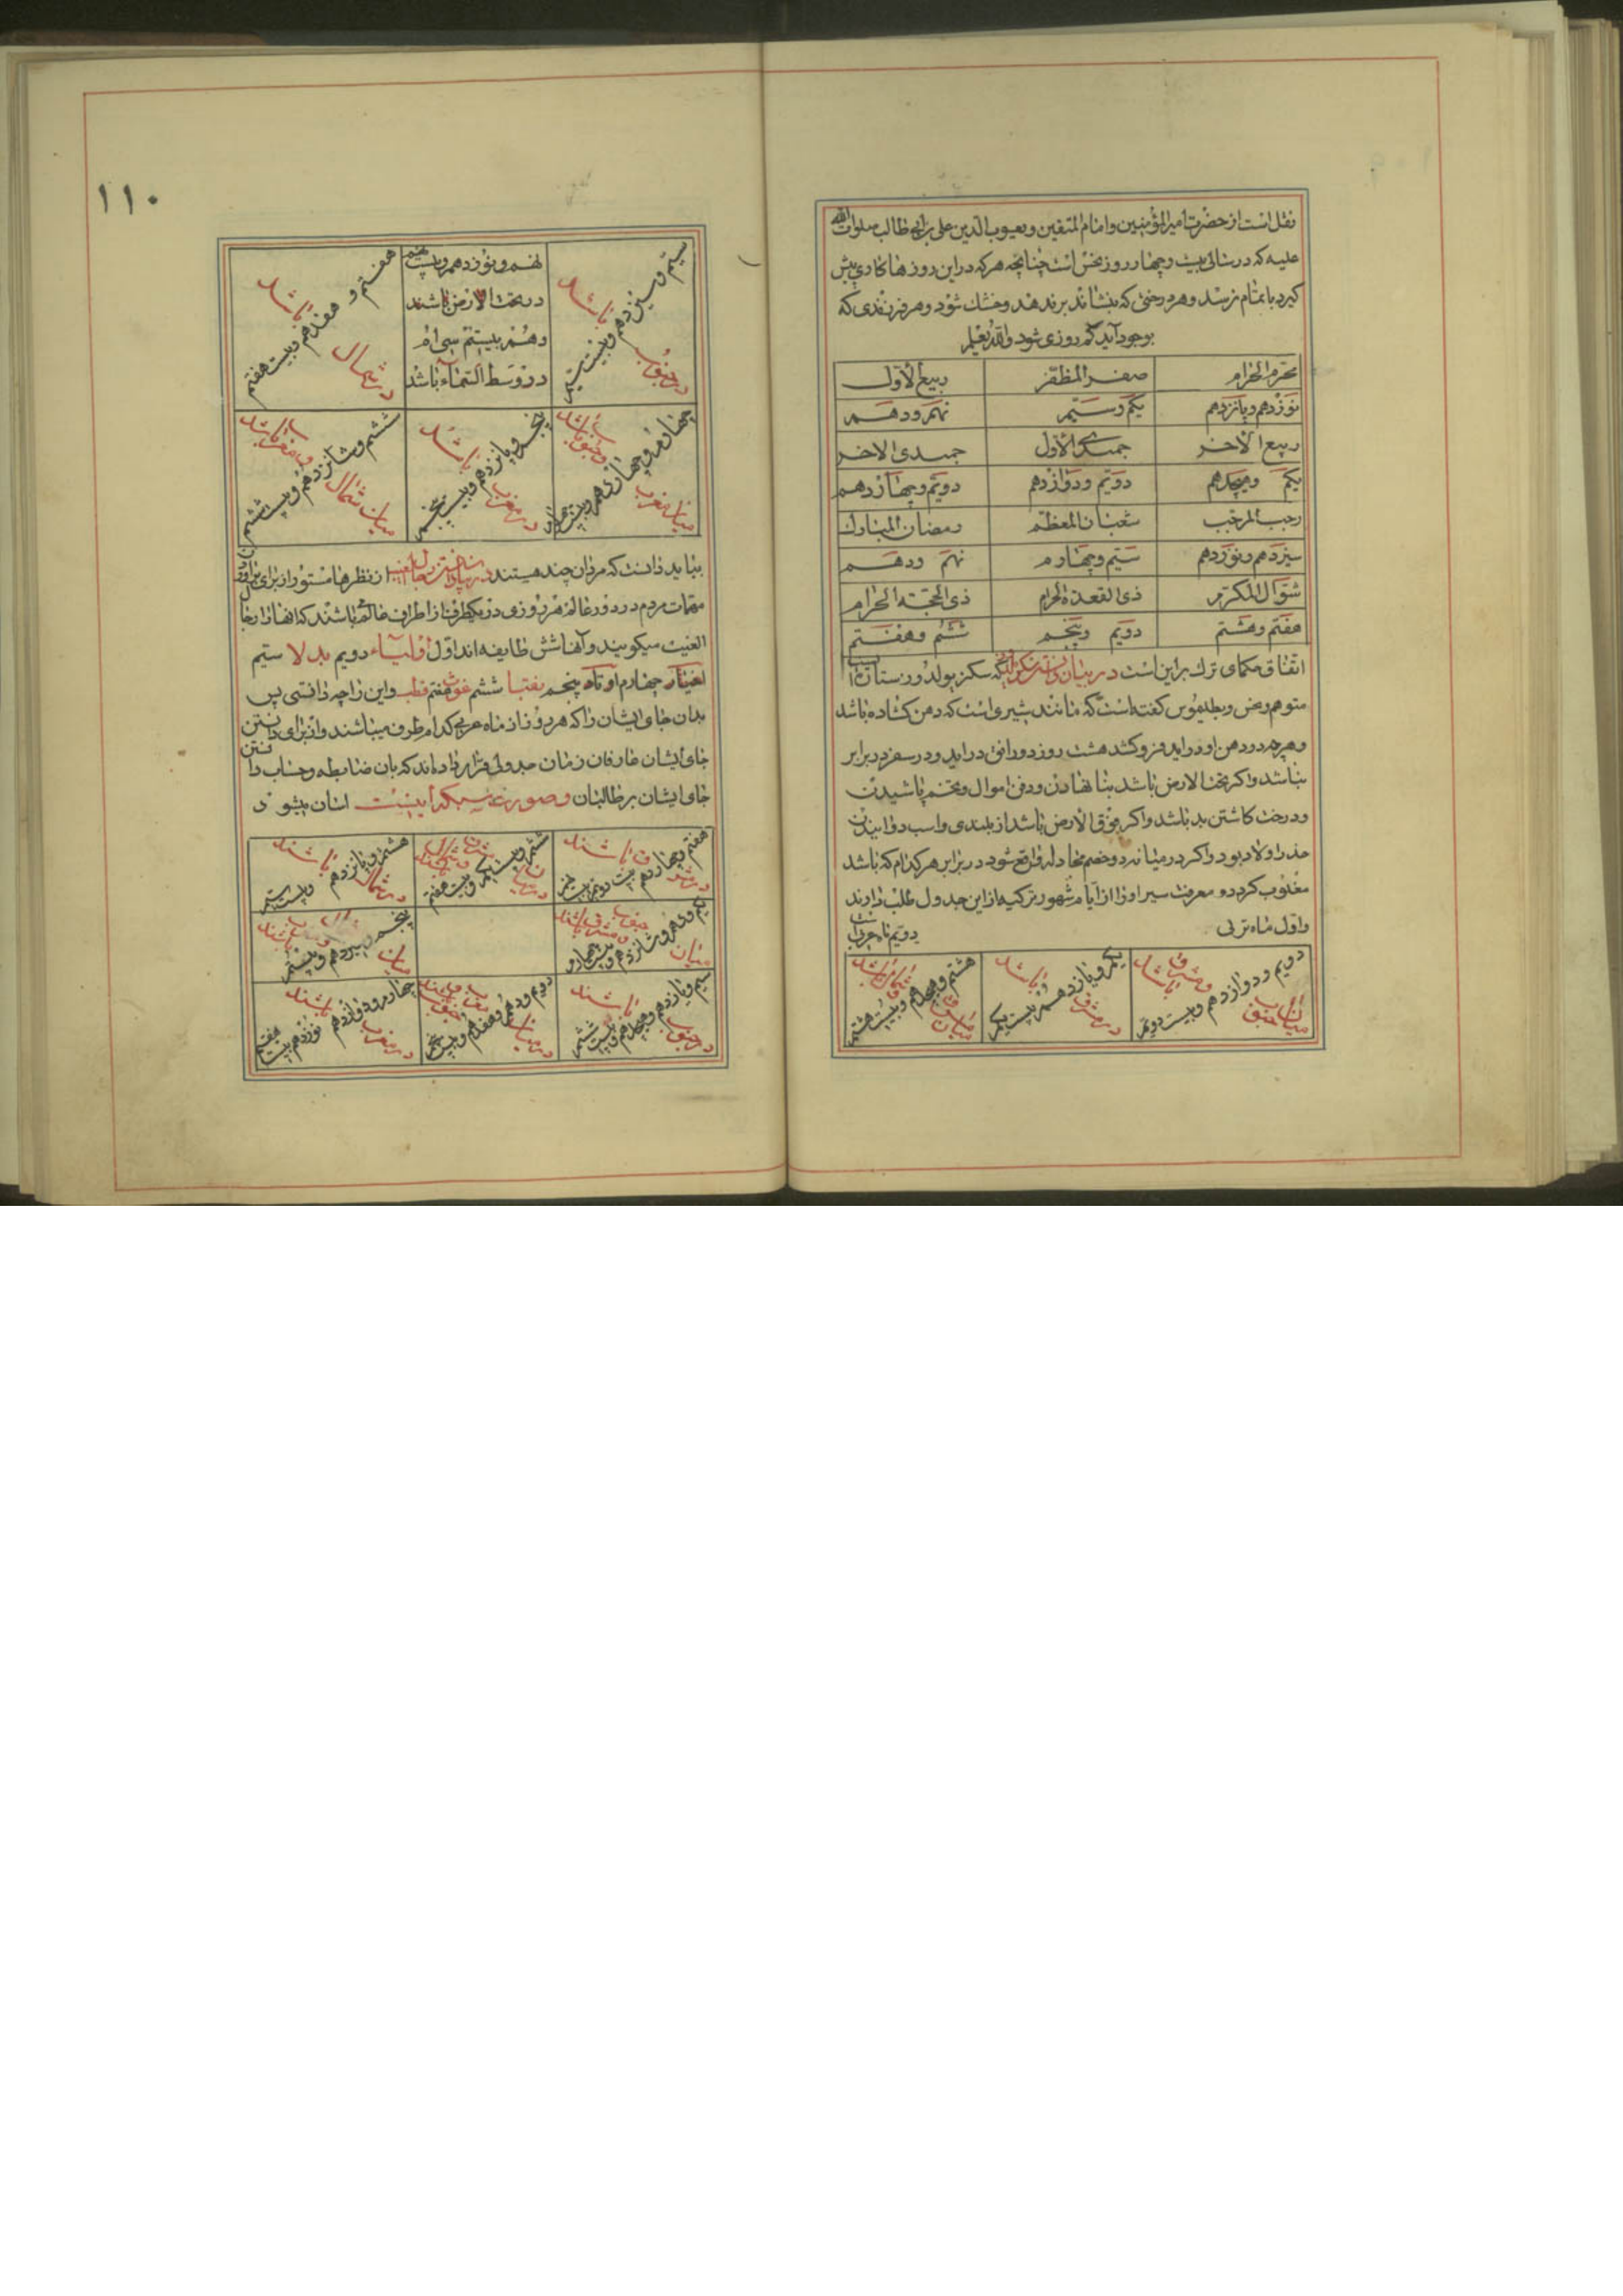 نقل است از حضرت امیرالمؤمنین و امام المتقین و یعسوب الدین علی بن ابی طالب صلوات الله
علیه که در سالی بیست و چهار روز نحس است چنانچه هر که در این روزها کاری پیش
گیرد باتمام نرسد و هر درختی که بنشاند بر ندهد و خشک شود و هر فرزندی که
بوجود آید کم روزی شود والله یعلم
محرم الحرام صفر المظفر ربیع الاول
نوزدهم و پانزدهم یکم و سیم نهم و دهم
ربیع الاخر جمیدی الاول جمیدی الاخر
یکم و هیجدهم دویم و دوازدهم دویم و چهاردهم
رجب المرجب شعبان المعظم رمضان المبارک
سیزدهم و نوزدهم سیم و چهارم نهم و دهم
شوال المکرم ذی القعدة الحرام ذی الحجة الحرام
هفتم و هشتم دویم و پنجم ششم و هفتم
اتفاق حکمای ترک براین است در بیان سکز یولدوز ستاره
و نحس و بطلیموس گفته است که مانند شیری است که دهن گشاده باشد
و هرچه در دهن او در آید فرو کشد هشت روز در افق در آید و در سفر در برابر
نباشد و اگر تحت الارض باشد بنا نهادن و دفن اموال و تخم پاشیدن
و درخت کاشتن بد باشد و اگر فوق الارض باشد از بلندی و اسب دوانیدن
حذر اولا بود و اگر در میانه دو خصم مجادله واقع شود در برابر هر کدام که باشد
مغلوب گردد و معرفت سیر او را از ایام شهور ترکیه از این جدول طلب دارند
و اول ماه ترکی دویم ماه عربی است
دویم و دوازدهم و بیست دویم میان جنوب و مشرق باشد
یکم و یازدهم و بیست یکم در مشرق باشد
هشتم و هیجدهم و بیست هشتم میان مشرق و شمال باشد
۱۱۰
سیم و سیزدهم و بیست سیم در جنوب باشد
نهم و نوزدهم و بیست نهم
در تحت الارض باشند
و دهم بیستم سی ام
در وسط السماء باشد
هفتم و هفدهم و بیست هفتم در شمال باشد
چهارم و چهاردهم و بیست چهارم میان مغرب و جنوب باشد
پنجم و پانزدهم و بیست پنجم در مغرب باشد
ششم و شانزدهم و بیست ششم میان شمال و مغرب باشد
بباید دانست که مردان چند هستند در بیان رجال الغیب از نظرها مستور از برای
مهمات مردم در دور عالم هر روزی در یکطرف از اطراف عالم باشند که انها را رجال
الغیب میگویند و آنها شش طایفه اند اول اولیاء دویم بدلا سیم
اخیار چهارم اوتاد پنجم نقبا ششم غوث هفتم قطب و این را چه دانستی پس
بدان جای ایشان را که هر روز از ماه عربی کدام طرف میباشند و از برای دانستن
جای ایشان عارفان زمان جدولی قرار داده اند که بان ضابطه و حساب دانستن
جای ایشان بر طالبان اسان میشود
هفتم و چهاردهم بیست دویم بیست نهم در مشرق باشند
ششم و بیست یکم و بیست هفتم
هشتم و پانزدهم و بیست سیم در شمال باشند
یکم و نهم و شانزدهم و بیست چهارم میان جنوب و مشرق باشند
پنجم و سیزدهم و بیستم میان باشند
سیم و یازدهم و هیجدهم و بیست ششم در جنوب باشند
دویم و دهم و هفدهم و بیست پنجم در میان
چهارم و دوازدهم نوزدهم بیست هفتم در مغرب باشند